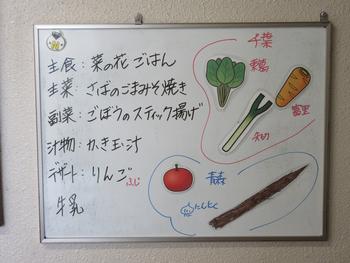 主食：菜の花ごはん
主菜：さばのごまみそ焼き
副菜：ごぼうのスティック揚げ
汁物：かき玉汁
デザート：りんご
ふじ
牛乳
千葉
富里
青森
にんにく